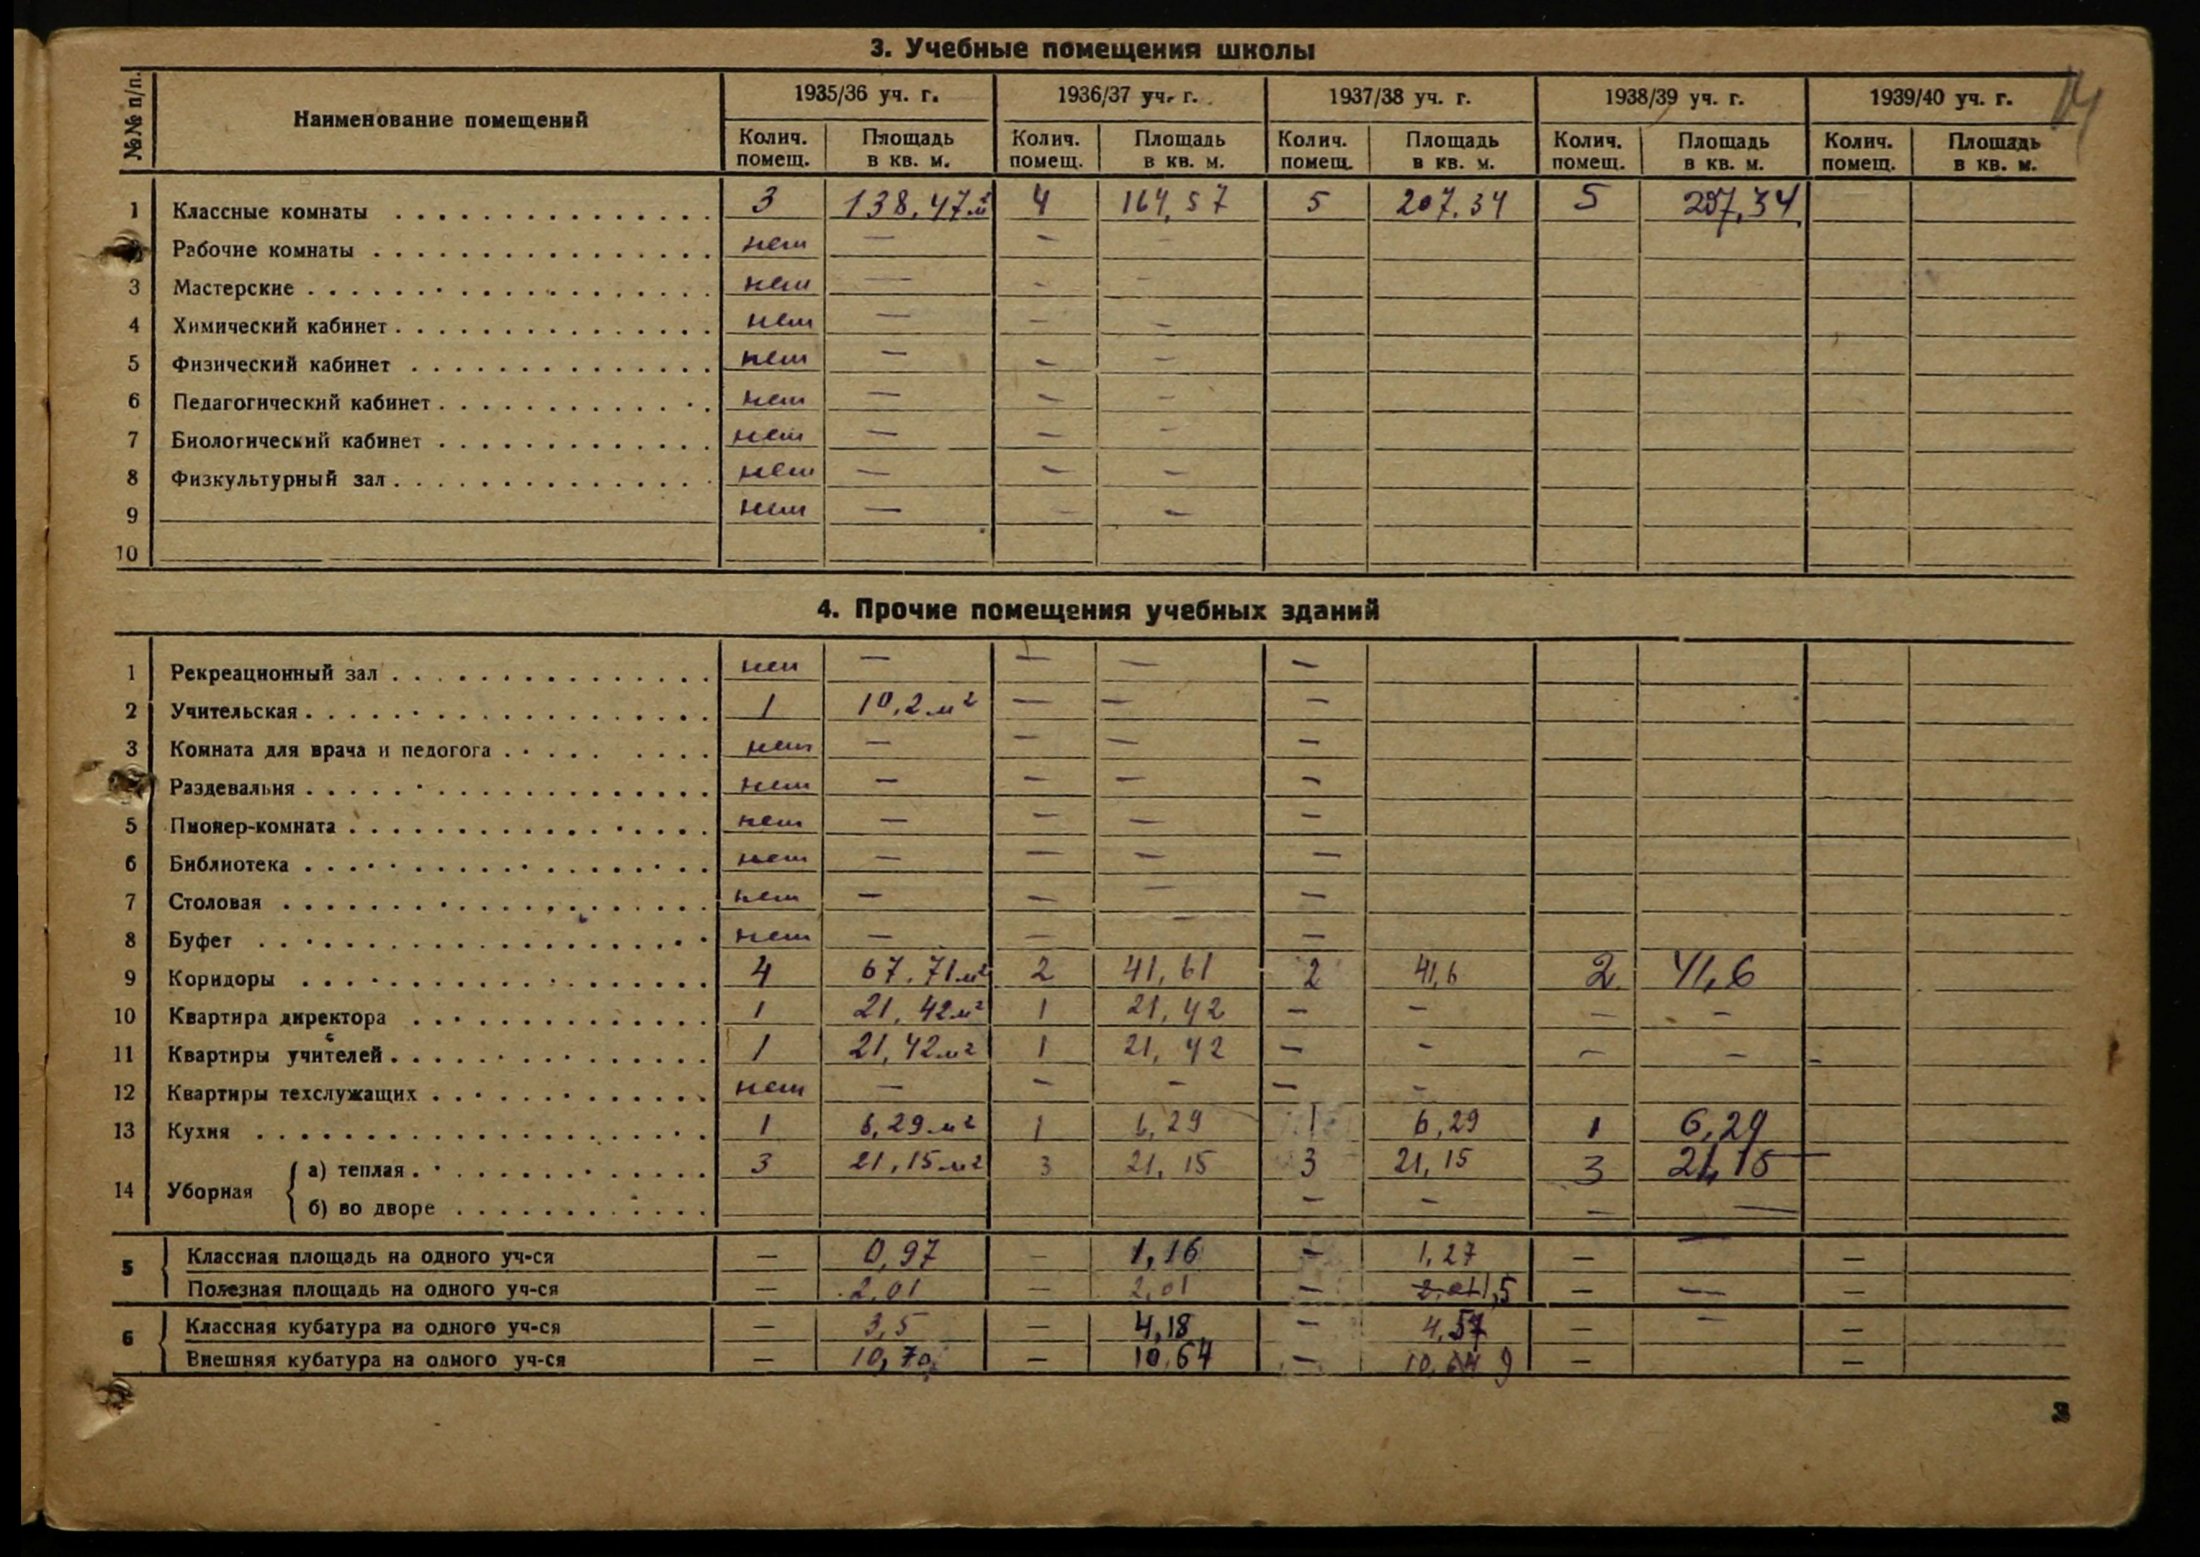 3. Учебные помещения школы
№№ п/п. Наименование помещений 1935/36 уч. г. 1936/37 уч. г. 1937/38 уч. г. 1938/39 уч. г. 1939/40 уч. г.
Колич. помещ. Площадь в кв. м. Колич. помещ. Площадь в кв. м. Колич. помещ. Площадь в кв. м. Колич. помещ. Площадь в кв. м. Колич. помещ. Площадь в кв. м.
1 Классные комнаты 3 138,47 м² 4 164,57 5 207.34 5 207,34
Рабочие комнаты нет — — —
3 Мастерские нет — — —
4 Химический кабинет нет — — —
5 Физический кабинет нет — — —
6 Педагогический кабинет нет — — —
7 Биологический кабинет нет — — —
8 Физкультурный зал нет — — —
9 нет — — —
10
4. Прочие помещения учебных зданий
1 Рекреационный зал нет — — — —
2 Учительская 1 10,2 м² — — —
3 Комната для врача и педогога нет — — — —
Раздевальня нет — — — —
5 Пионер-комната нет — — — —
6 Библиотека нет — — — —
7 Столовая нет — — — —
8 Буфет нет — — — —
9 Коридоры 4 67,71 м² 2 41,61 2 41,6 2 41,6
10 Квартира директора 1 21,42 м² 1 21,42 — — — —
11 Квартиры учителей 1 21,42 м² 1 21,42 — — — — —
12 Квартиры техслужащих нет — — — — —
13 Кухня 1 6,29 м² 1 6,29 1 6,29 1 6,29
14 Уборная а) теплая 3 21,15 м² 3 21,15 3 21,15 3 21,15
б) во дворе — — — —
5 Классная площадь на одного уч-ся — 0,97 — 1,16 — 1,27 — — —
Полезная площадь на одного уч-ся — 2,01 — 2,01 — 1,5 — — —
6 Классная кубатура на одного уч-ся — 3,5 — 4,18 — 4,57 — — —
Внешняя кубатура на одного уч-ся — 10,70 — 10,64 — — —
3